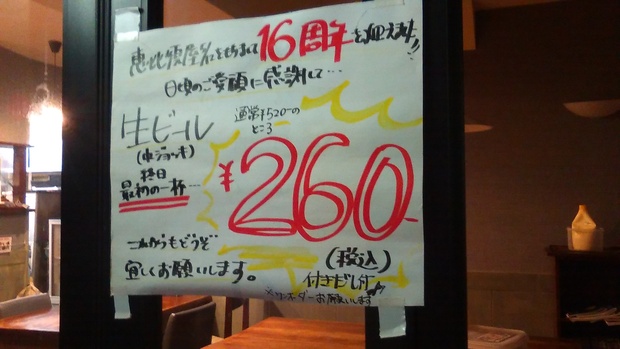 恵比須屋名を改めて16周年を迎えます!!
日頃のご愛顧に感謝して…
生ビール
(中ジョッキ)
終日
最初の一杯…
通常¥520-の
ところ
¥260-
(税込)
付きだし付♪
これからもどうぞ
宜しくお願いします。
※オーダーお願いします